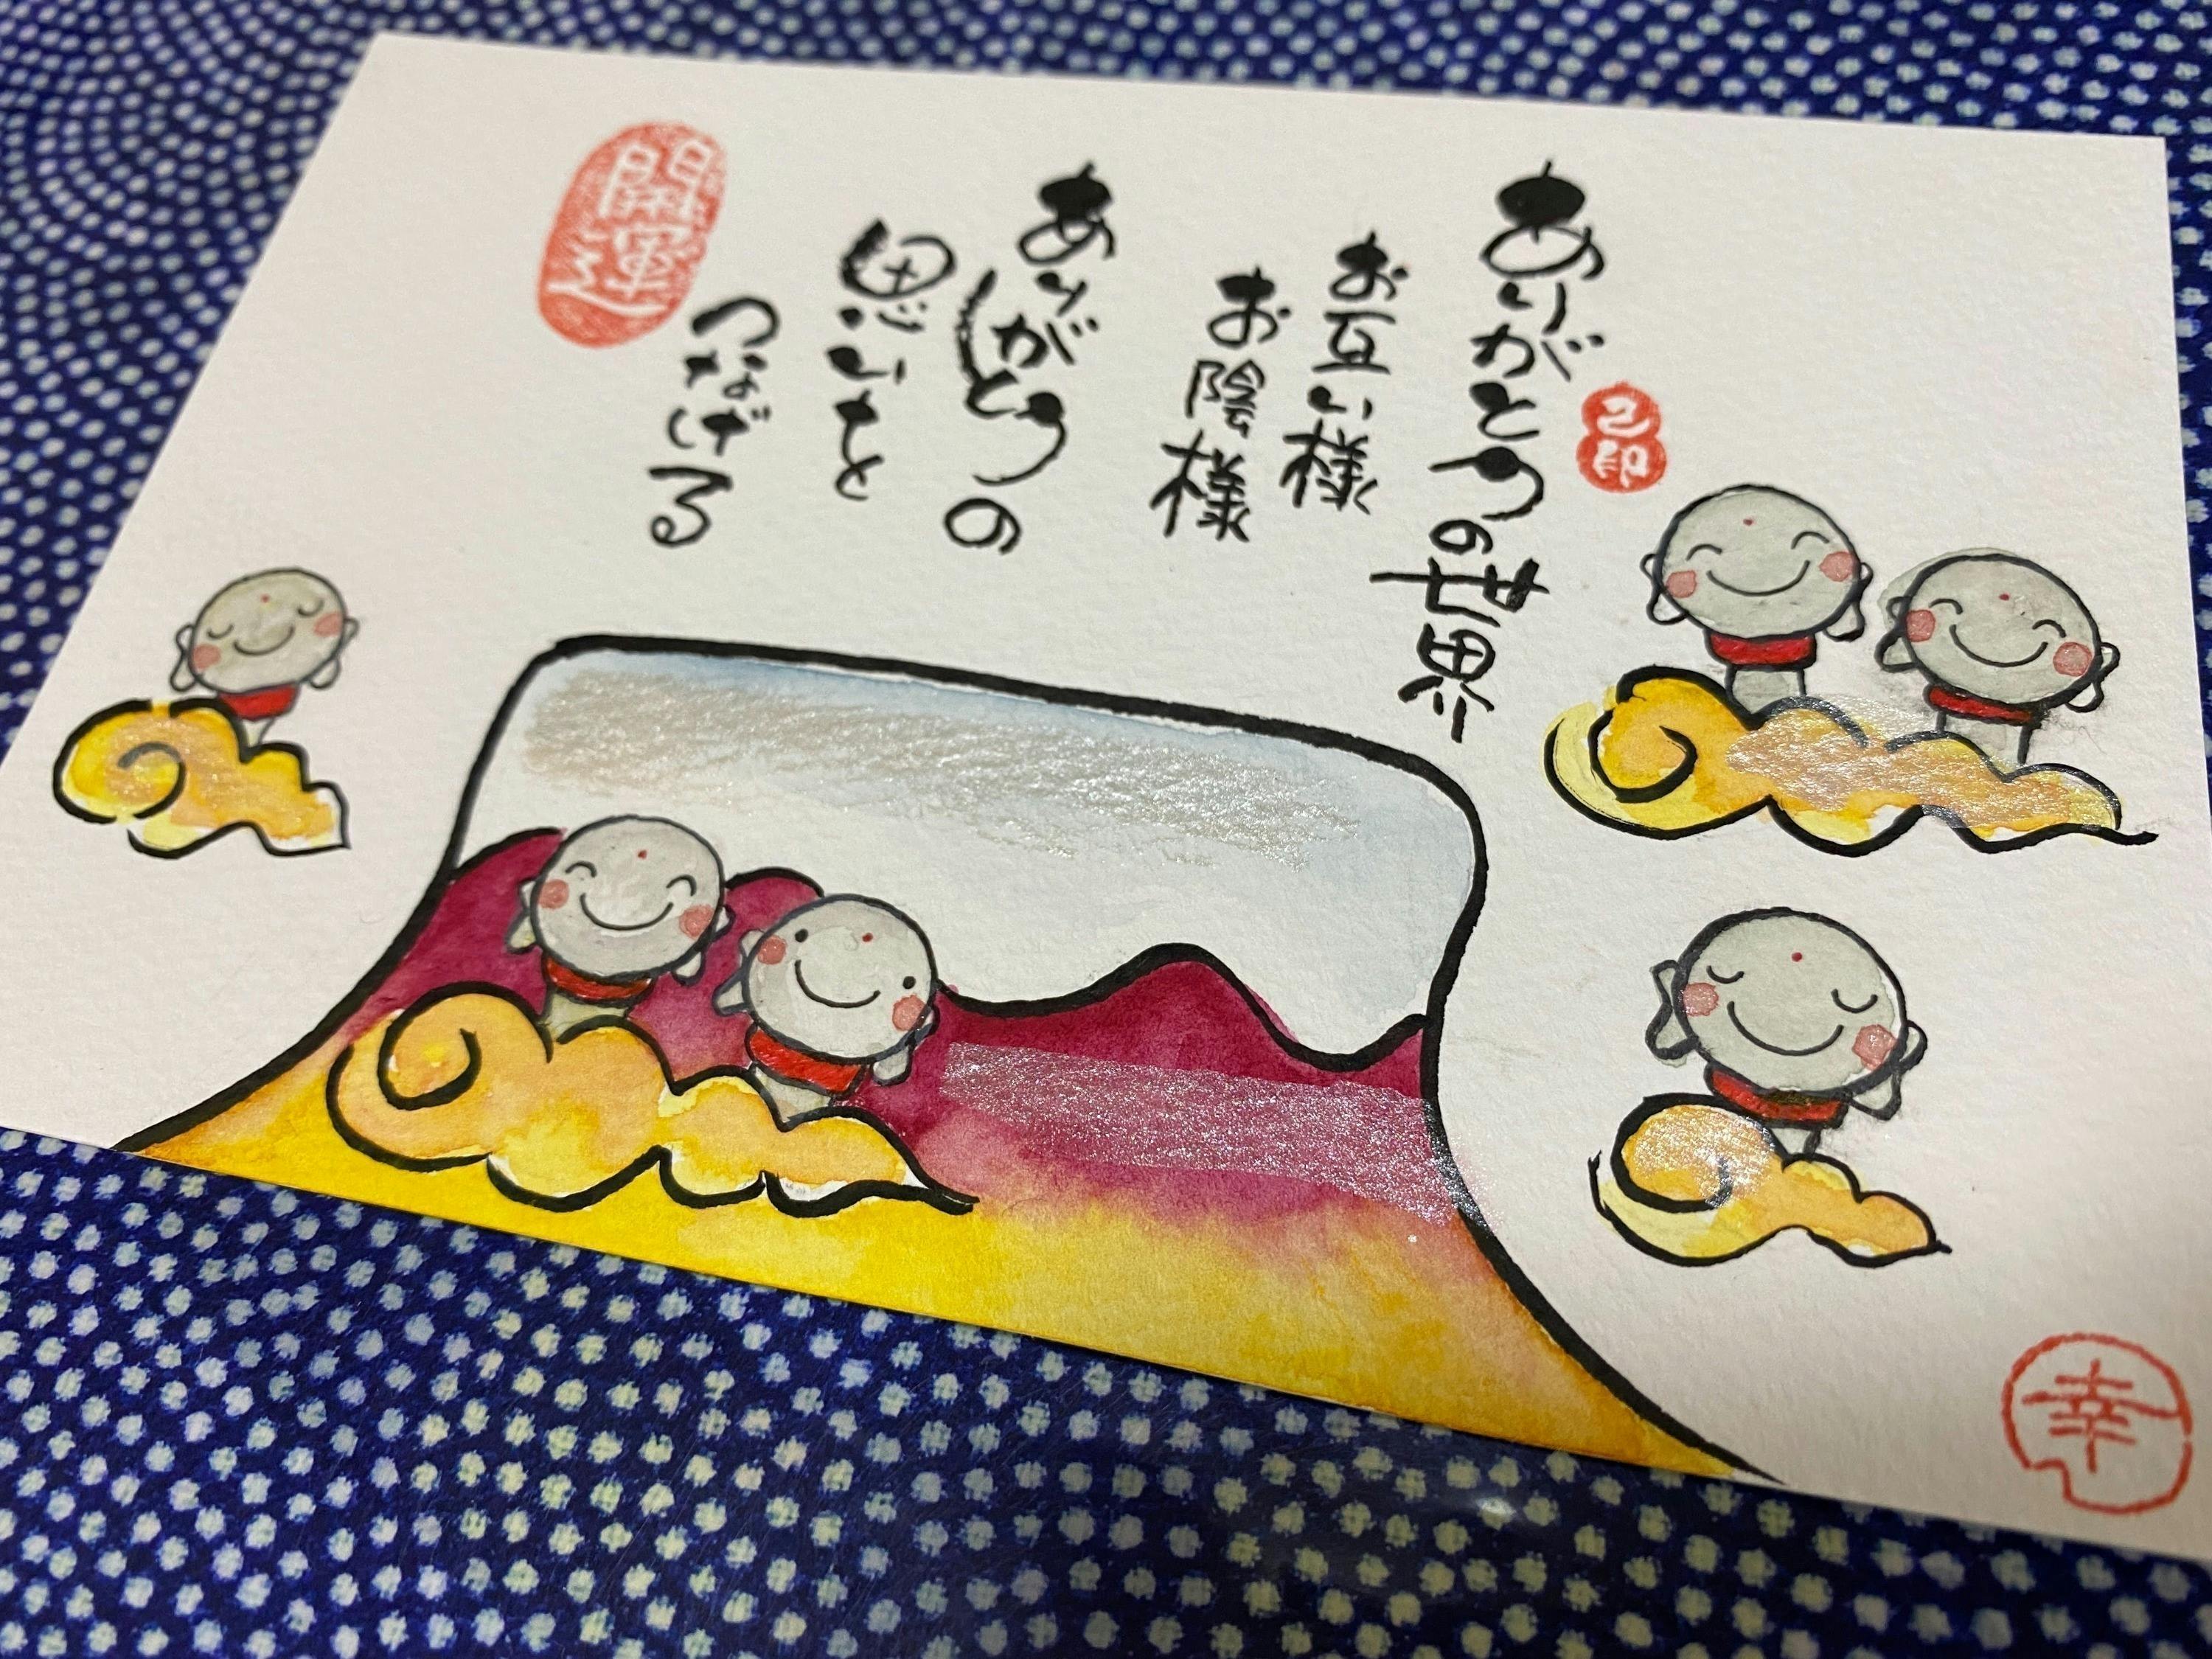 ありがとうの世界
お互い様
お陰様
ありがとうの
思いを
つなげる
己
印
幸